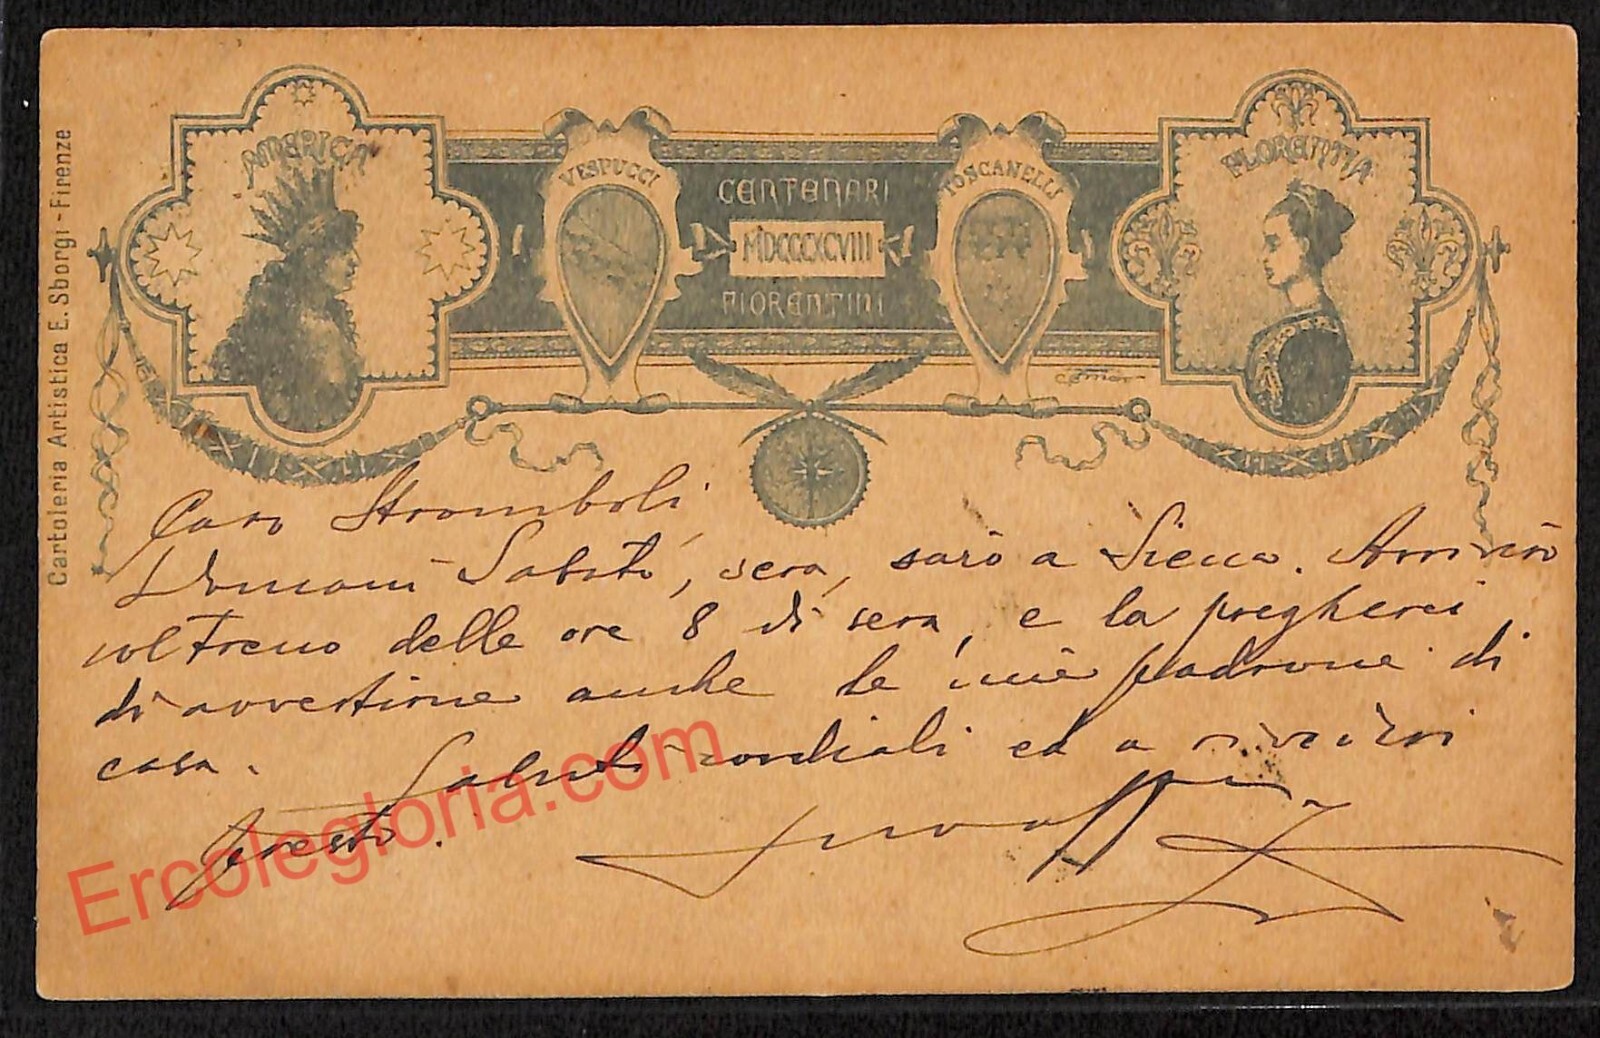 AMERICA
VESPUCCI
CENTENARI
MDCCCXCVIII
FIORENTINI
TOSCANELLI
FLORENTIA
Cartoleria Artistica E. Sborgi - Firenze
Caro Stromboli,
Domani Sabato, sera, sarò a Siena. Arriverò
col treno delle ore 8 di sera, e la pregherei
di avvertirne anche le mie padrone di
casa. Saluti cordiali ed a rivederci
presto.
Ercolegloria.com